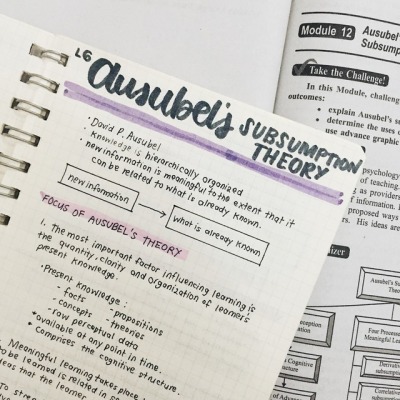 L6 Ausubel's SUBSUMPTION
THEORY
· David P. Ausubel
· Knowledge is hierarchically organized
new information is meaningful to the extent that it
can be related to what is already known.
new information
what is already known
FOCUS OF AUSUBEL'S THEORY
1. The most important factor influencing learning is
the quantity, clarity and organization of learner's
present knowledge.
· Present knowledge:
- facts
- propositions
- concepts
- theories
- raw perceptual data
* available at any point in time.
* comprises the cognitive structure.
Meaningful learning takes place
to be learned is related in so
ideas that the learner
To stren
Module 12
Ausubel's
Subsump
Take the Challenge!
In this Module, challeng
outcomes:
explain Ausubel's s
determine the uses o
use advance graphic
psychology
of teaching.
as providers
f information.
proposed ways
rs. His ideas are
izer
Ausubel's Su
Theo
ception
ation
Four Proces
Meaningful Le
s Cognitive
ucture
Derivati
subsump
of Advanc
Correlativ